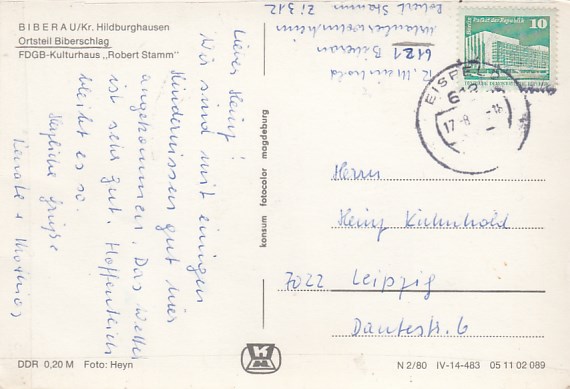 BIBERAU/Kr. Hildburghausen
Ortsteil Biberschlag
FDGB-Kulturhaus „Robert Stamm"
Lieber Heinz!
Wir sind mit einigen
Hindernissen gut hier
angekommen. Das Wetter
ist sehr gut. Hoffentlich
bleibt es so.
Herzliche Grüße
Renate + Thomas
6121 Biberau
Robert Stamm Zi 312
konsum fotocolor magdeburg
Palast der Republik
10
EISFELD
17-8
Herrn
Heinz Kühnhold
7022 Leipzig
Dantestr. 6
DDR 0,20 M Foto: Heyn
N 2/80 IV-14-483 05 11 02 089